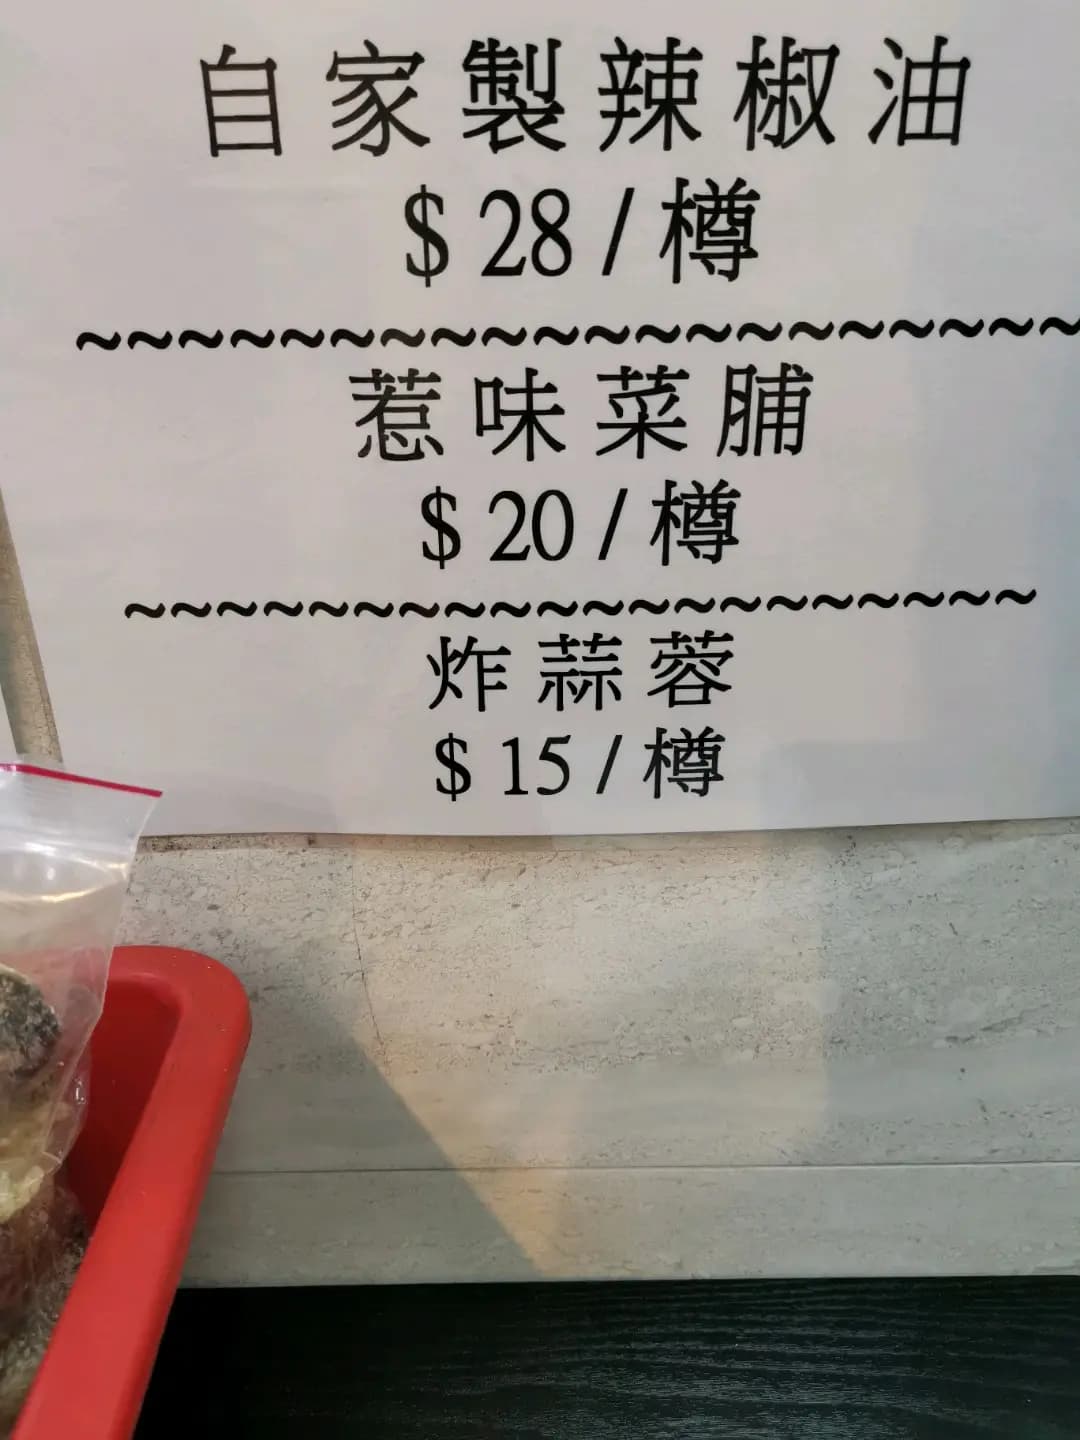 自家製辣椒油
$28/樽
~~~~~~~~~~~~~~~~~~~~
惹味菜脯
$20/樽
~~~~~~~~~~~~~~~~~~~~
炸蒜蓉
$15/樽